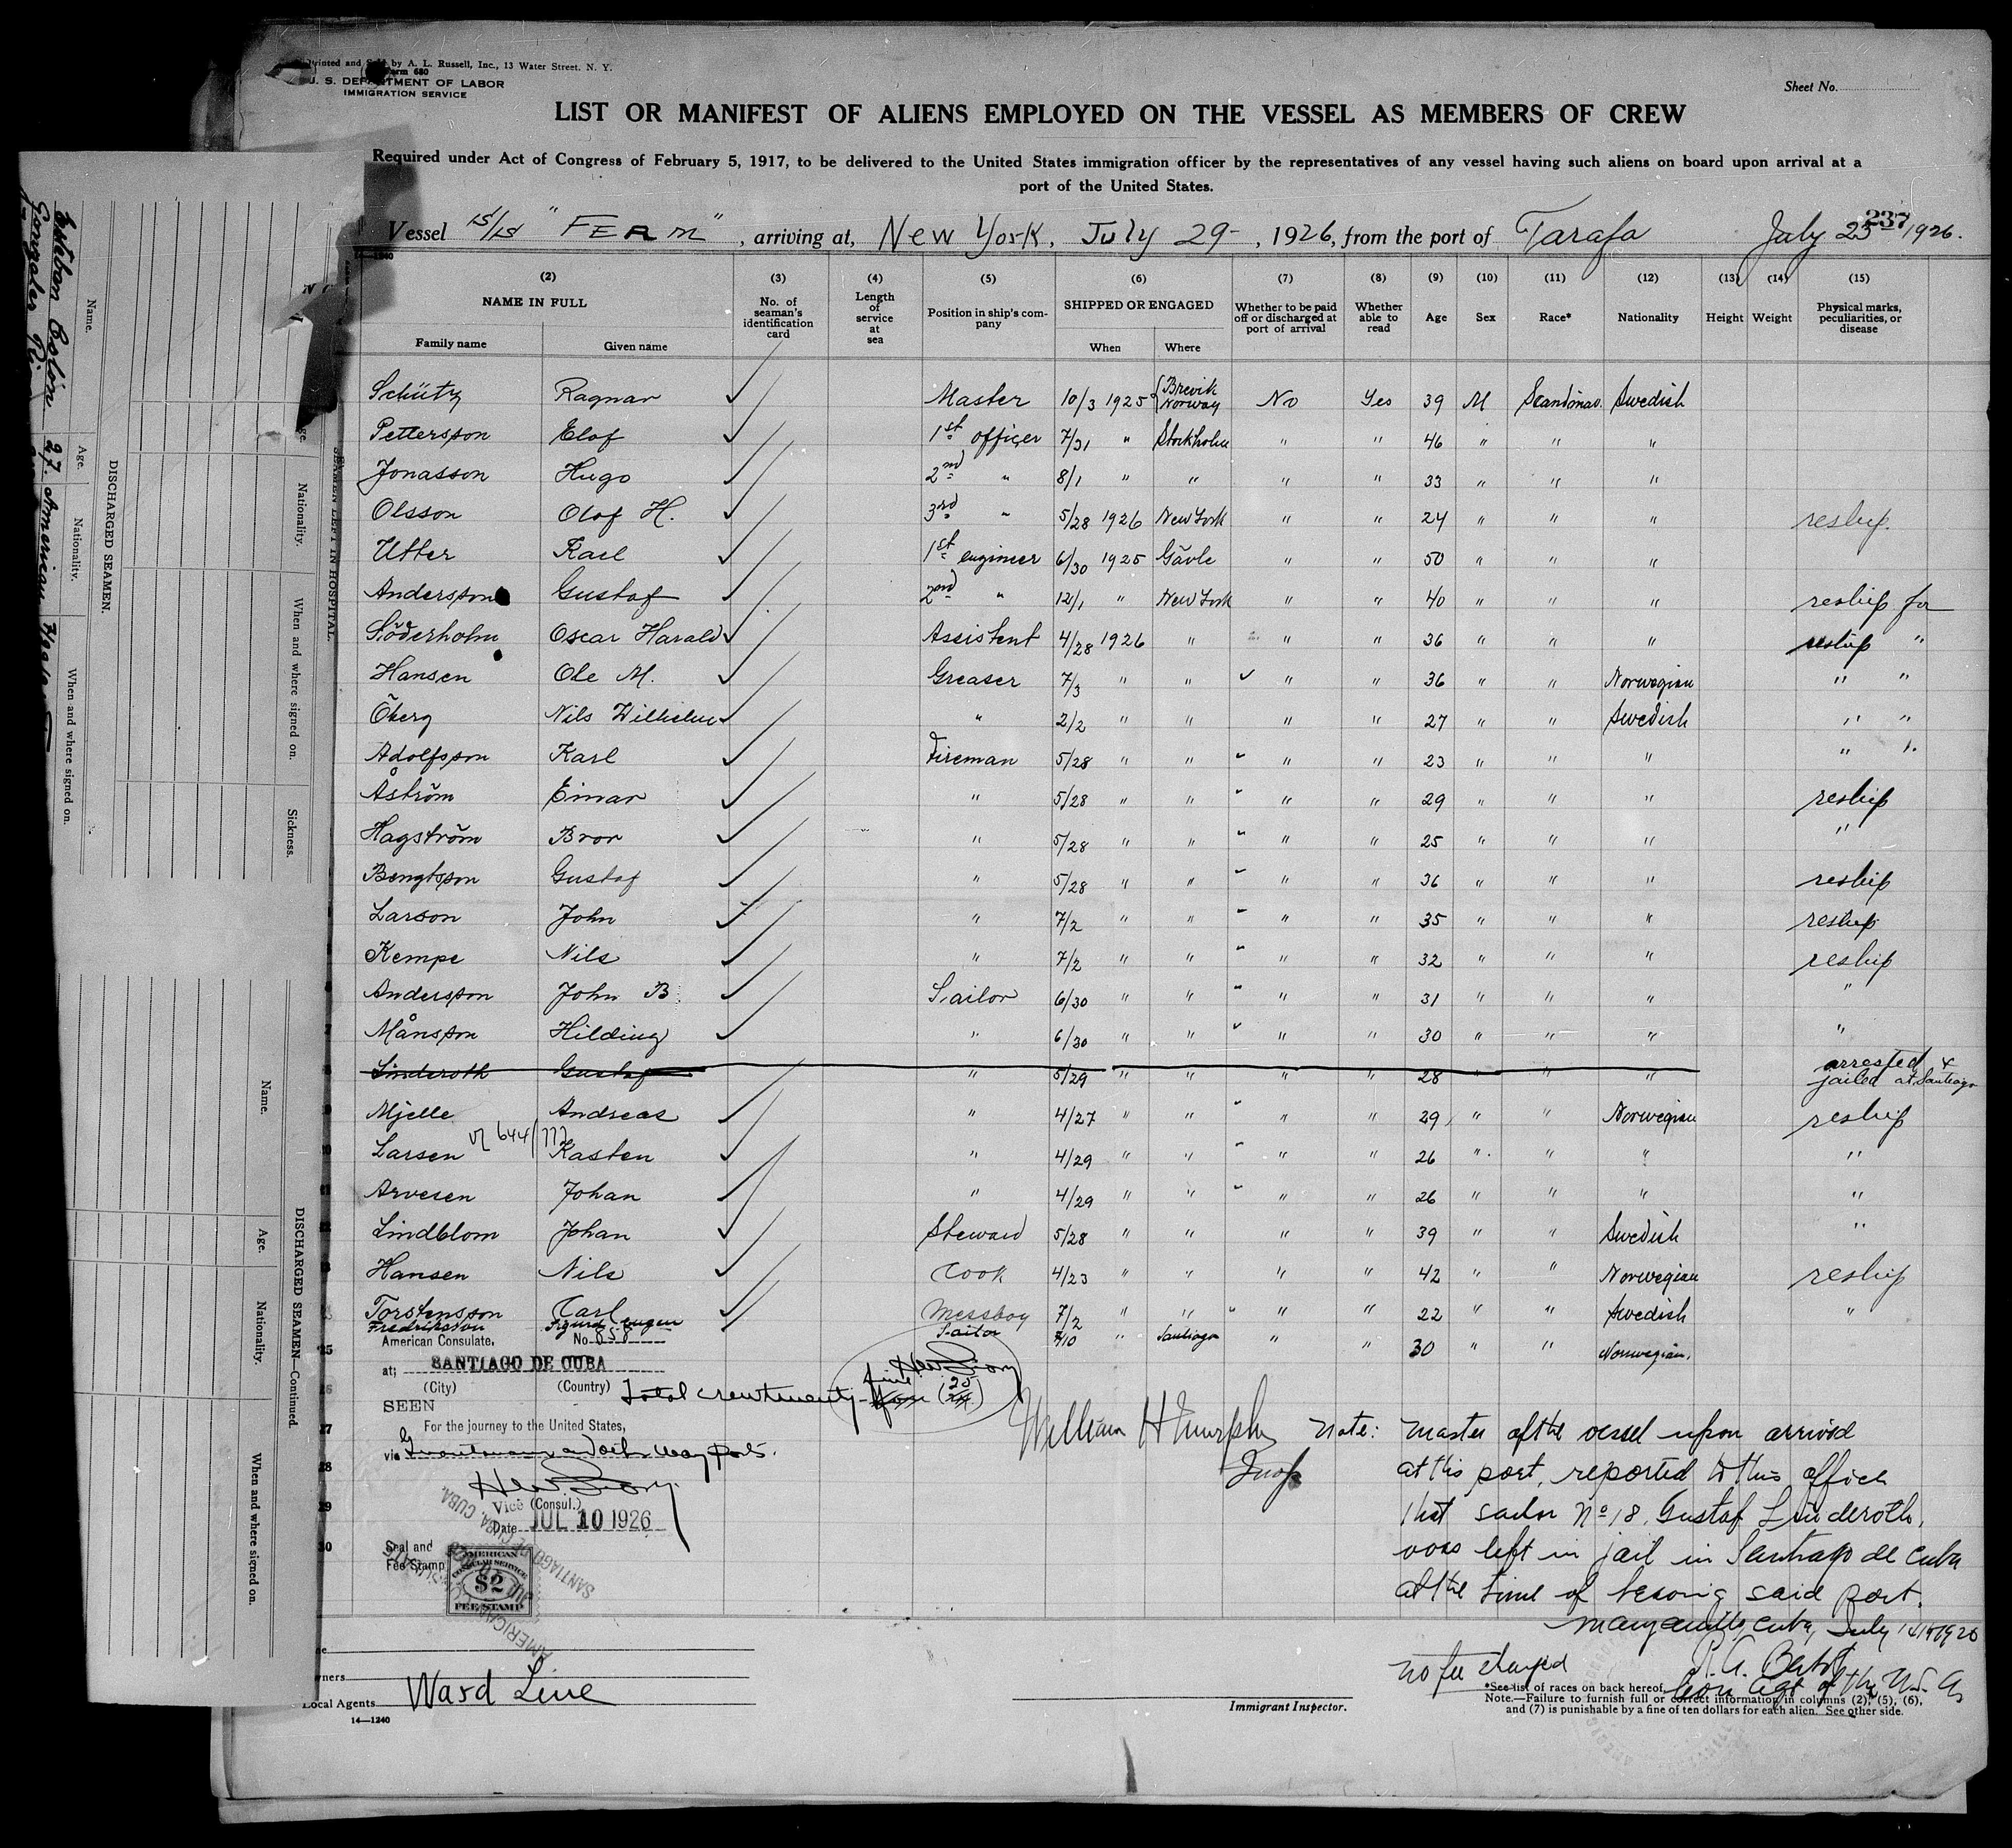 Printed and Sold by A. L. Russell, Inc., 13 Water Street, N. Y.
Form 680
U. S. DEPARTMENT OF LABOR
IMMIGRATION SERVICE
Sheet No.
LIST OR MANIFEST OF ALIENS EMPLOYED ON THE VESSEL AS MEMBERS OF CREW
Required under Act of Congress of February 5, 1917, to be delivered to the United States immigration officer by the representatives of any vessel having such aliens on board upon arrival at a
port of the United States.
237
Vessel S/S "FERM", arriving at, New York, July 29-, 1926, from the port of Tarafa July 25 1926.
14—1240
(2) (3) (4) (5) (6) (7) (8) (9) (10) (11) (12) (13) (14) (15)
NAME IN FULL No. of seaman's identification card Length of service at sea Position in ship's company SHIPPED OR ENGAGED Whether to be paid off or discharged at port of arrival Whether able to read Age Sex Race* Nationality Height Weight Physical marks, peculiarities, or disease
Family name Given name When Where
Schütz Ragnar Master 10/3 1925 Brevik Norway No Yes 39 M Scandinav. Swedish
Pettersson Elof 1st officer 7/31 " Stockholm " " 46 " " "
Jonasson Hugo 2nd " 8/1 " " " " 33 " " "
Olsson Olof H. 3rd " 5/28 1926 New York " " 24 " " " reship.
Utter Karl 1st engineer 6/30 1925 Gävle " " 50 " " "
Andersson Gustaf 2nd " 12/1 " New York " " 40 " " " reship for
Söderholm Oscar Harald Assistent 4/28 1926 " " " 36 " " " reship "
Hansen Ole M. Greaser 7/3 " " " " 36 " " Norwegian " "
Öberg Nils Wilhelm " 2/2 " " " " 27 " " Swedish " "
Adolfsson Karl Fireman 5/28 " " " " 23 " " " " "
Åström Einar " 5/28 " " " " 29 " " " reship
Hagström Bror " 5/28 " " " " 25 " " " "
Bengtsson Gustaf " 5/28 " " " " 36 " " " reship
Larson John " 7/2 " " " " 35 " " " reship
Kempe Nils " 7/2 " " " " 32 " " " reship
Andersson John B. Sailor 6/30 " " " " 31 " " " "
Månsson Hilding " 6/30 " " " " 30 " " " "
Linderoth Gustaf " 5/29 " " " " 28 " " " arrested & jailed at Santiago
Mjelle Andreas " 4/27 " " " " 29 " " Norwegian reship
Larsen 644/777 Kasten " 4/29 " " " " 26 " " " "
Arvesen Johan " 4/29 " " " " 26 " " " "
Lindblom Johan Steward 5/28 " " " " 39 " " Swedish "
Hansen Nils Cook 4/23 " " " " 42 " " Norwegian reship
Torstensson Carl Messboy 7/2 " " " " 22 " " Swedish "
Fredriksson Sigurd Eugen Sailor 7/10 " Santiago " " 30 " " Norwegian.
American Consulate, No 858
at; SANTIAGO DE CUBA
(City) (Country)
Total crew twenty-five (25)
SEEN
For the journey to the United States,
via Guantanamo and other way ports.
Vice (Consul.)
Date JUL 10 1926
Seal and
Fee Stamp
AMERICAN
CONSULAR SERVICE
$2
FEE STAMP
William H Murphy
Insp
Note: Master of the vessel upon arrival
at this port, reported to this office
that sailor No 18, Gustaf Linderoth,
was left in jail in Santiago de Cuba
at the time of leaving said port.
Manzanillo, Cuba, July 14th 1926
No fee charged
Cons Agt of the U. S. A.
Owners
Local Agents Ward Line
14—1240
Immigrant Inspector.
*See list of races on back hereof.
Note.—Failure to furnish full or correct information in columns (2), (5), (6),
and (7) is punishable by a fine of ten dollars for each alien. See other side.
SEAMEN LEFT IN HOSPITAL.
Nationality. When and where signed on. Sickness.
DISCHARGED SEAMEN.
Name. Age. Nationality. When and where signed on.
Esteban Colón 27 American
Gonzalez
DISCHARGED SEAMEN—Continued.
Name. Age. Nationality. When and where signed on.